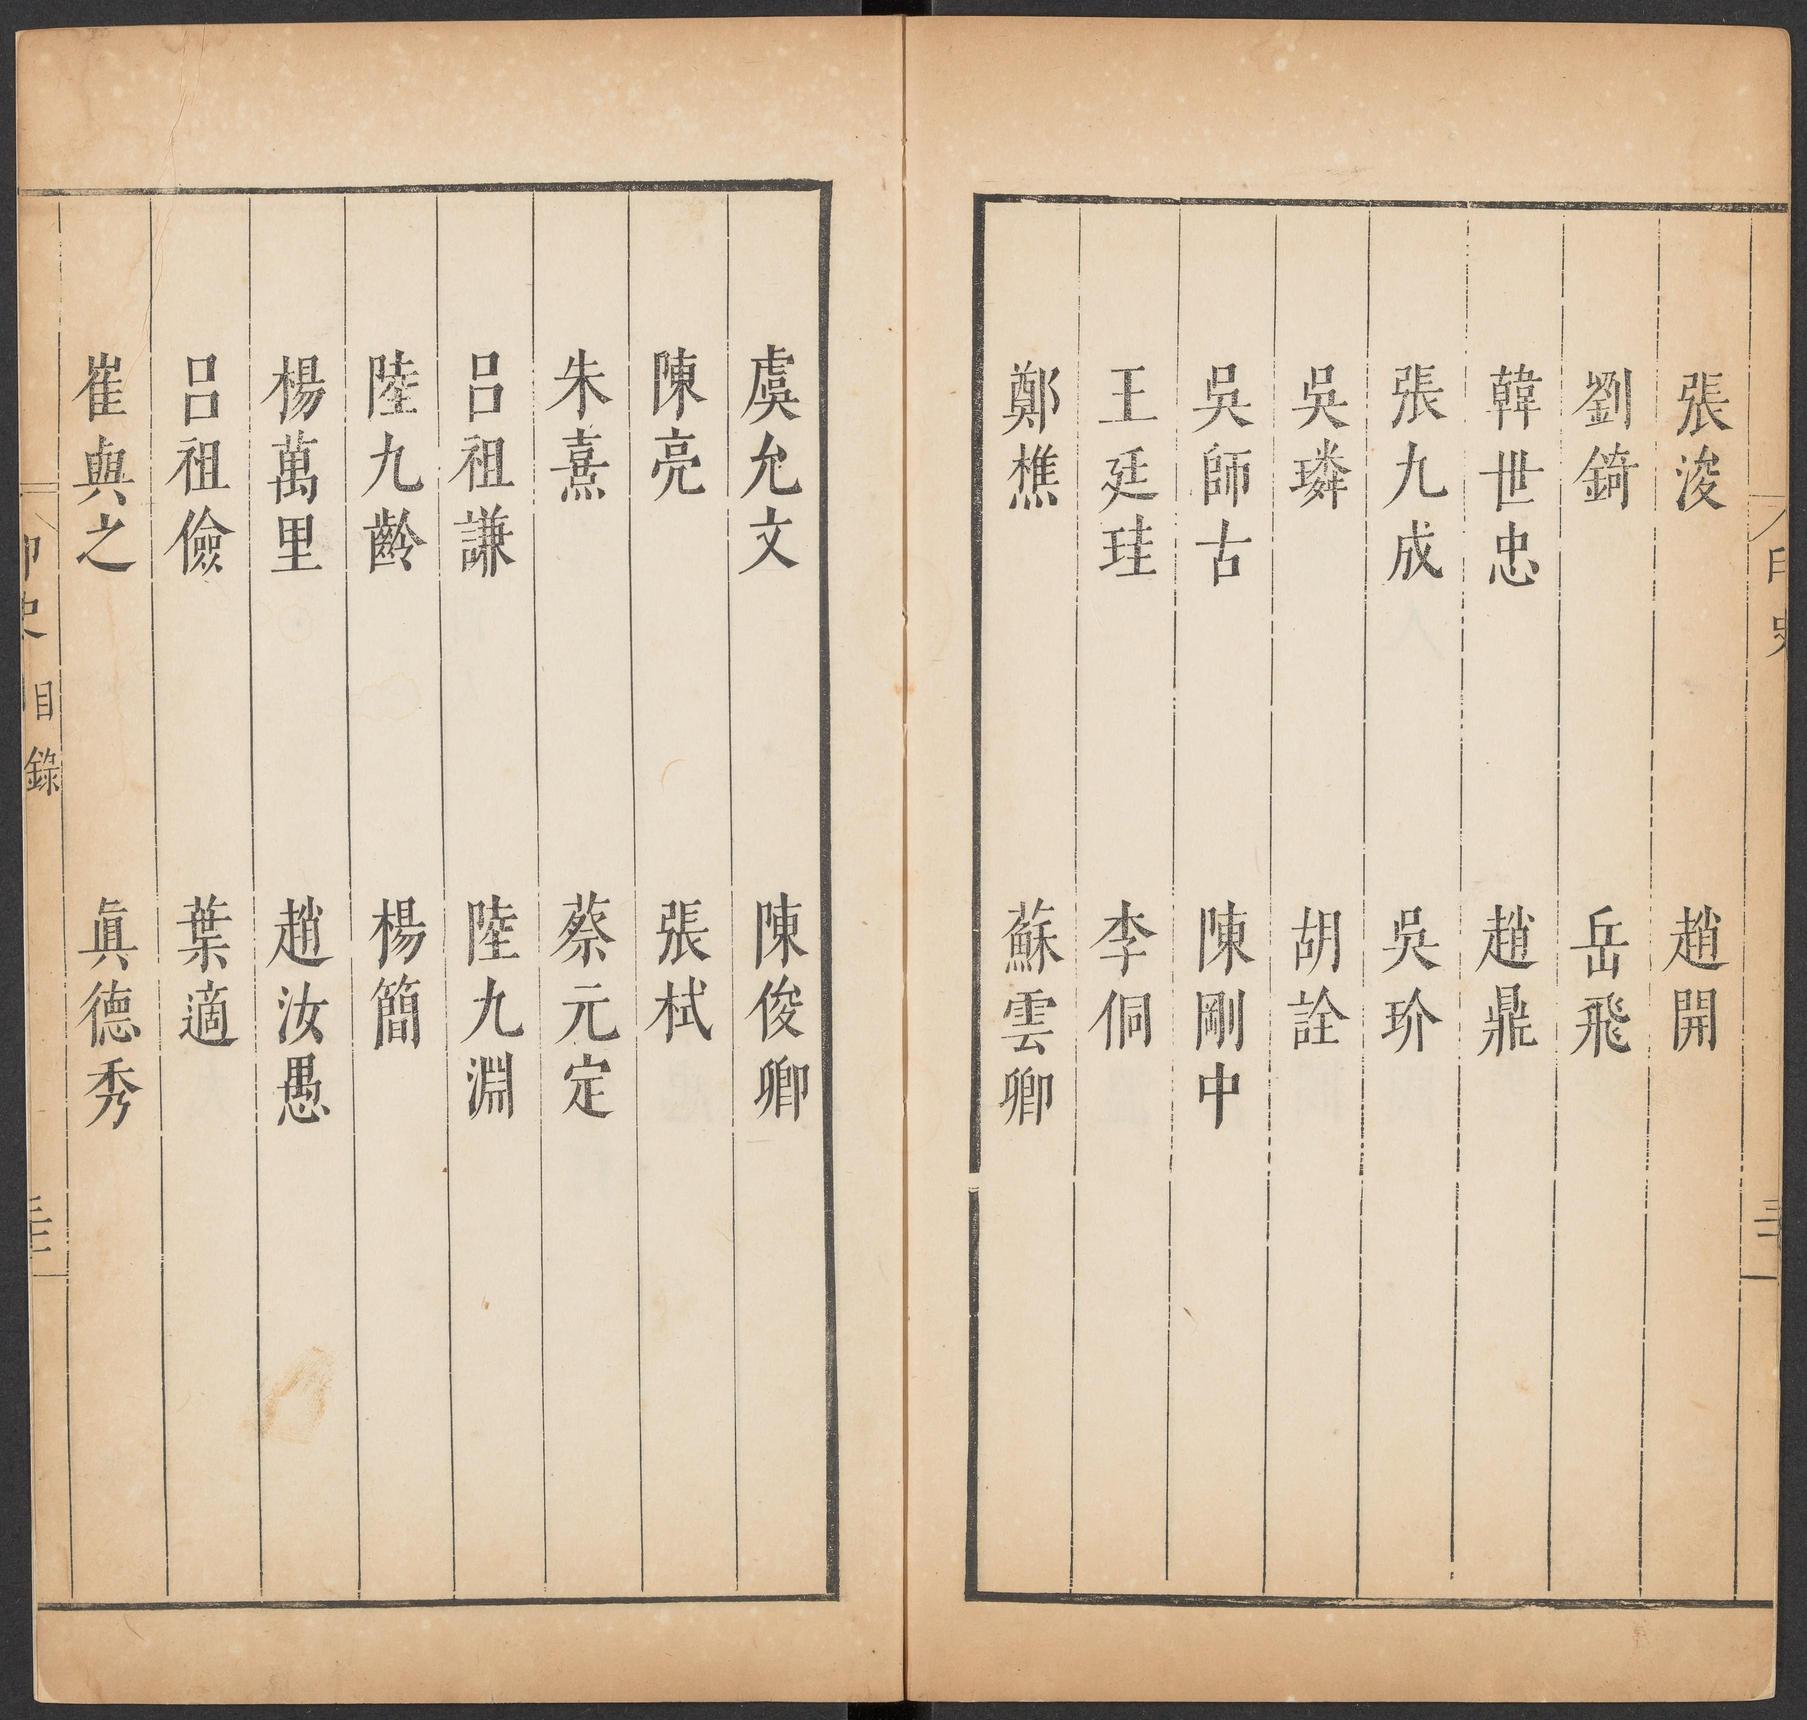 張浚 趙開
劉錡 岳飛
韓世忠 趙鼎
張九成 吳玠
吳璘 胡詮
吳師古 陳剛中
王廷珪 李侗
鄭樵 蘇雲卿
虞允文 陳俊卿
陳亮 張栻
朱熹 蔡元定
呂祖謙 陸九淵
陸九齡 楊簡
楊萬里 趙汝愚
呂祖儉 葉適
崔與之 眞德秀
印史 目錄